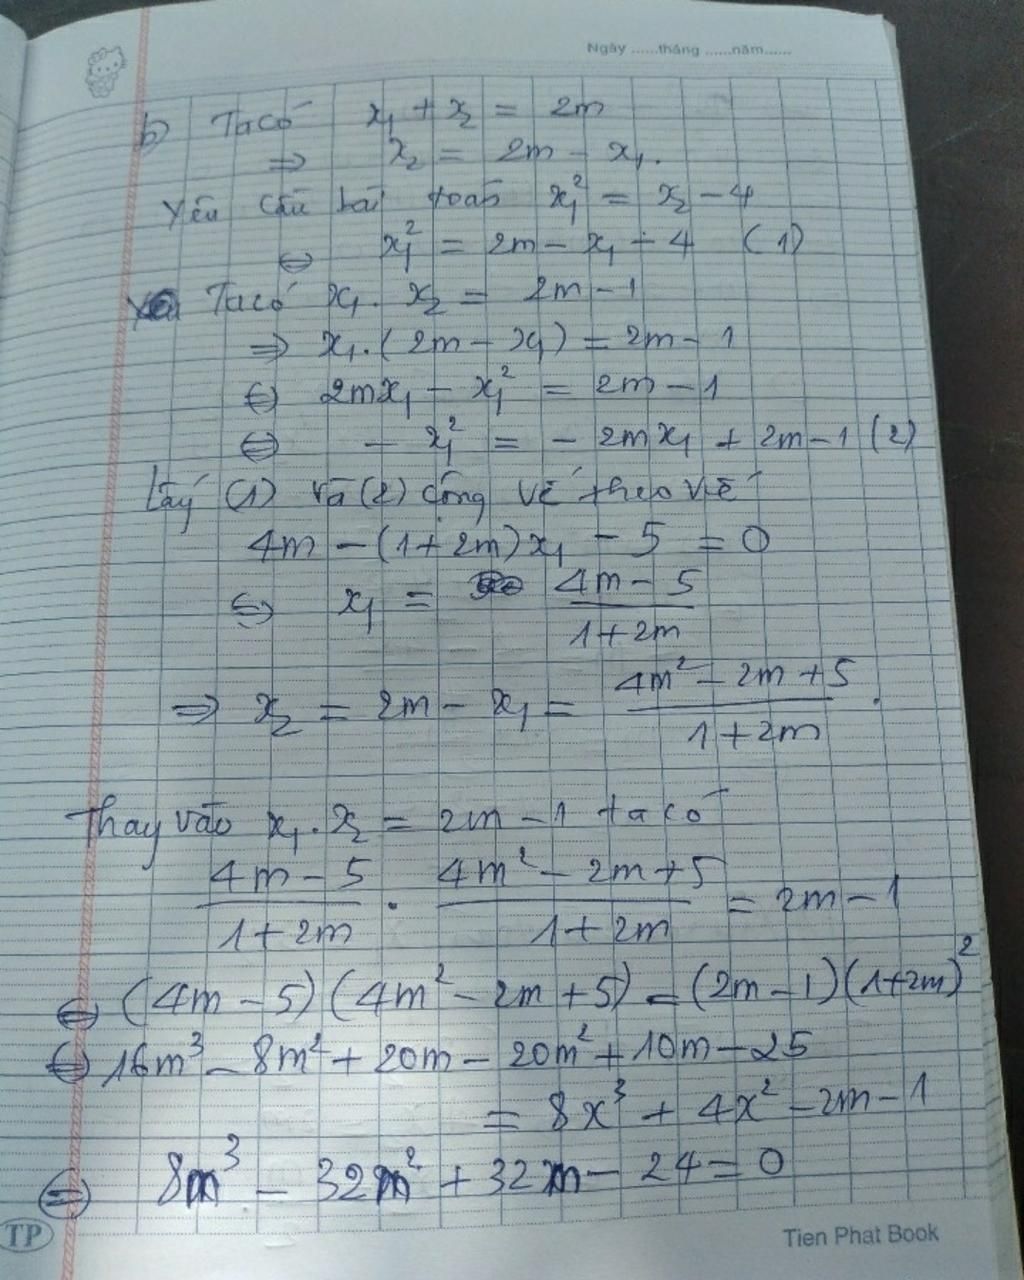 Ngày ......tháng ......năm......
b) Ta có x₁ + x₂ = 2m
⇒ x₂ = 2m - x₁.
Yêu cầu bài toán x₁² = x₂ - 4
⇔ x₁² = 2m - x₁ - 4 (1)
Ta có x₁. x₂ = 2m - 1
⇒ x₁.(2m - x₁) = 2m - 1
⇔ 2mx₁ - x₁² = 2m - 1
⇔ - x₁² = - 2mx₁ + 2m - 1 (2)
Lấy (1) và (2) cộng vế theo vế
4m - (1+2m)x₁ - 5 = 0
⇔ x₁ = (4m - 5)/(1+2m)
⇒ x₂ = 2m - x₁ = (4m² - 2m + 5)/(1+2m).
Thay vào x₁. x₂ = 2m - 1 ta có
(4m - 5)/(1+2m) . (4m² - 2m + 5)/(1+2m) = 2m - 1
⇔ (4m - 5)(4m² - 2m + 5) = (2m - 1)(1+2m)²
⇔ 16m³ - 8m² + 20m - 20m² + 10m - 25
= 8x³ + 4x² - 2m - 1
⇔ 8m³ - 32m² + 32m - 24 = 0
TP Tien Phat Book